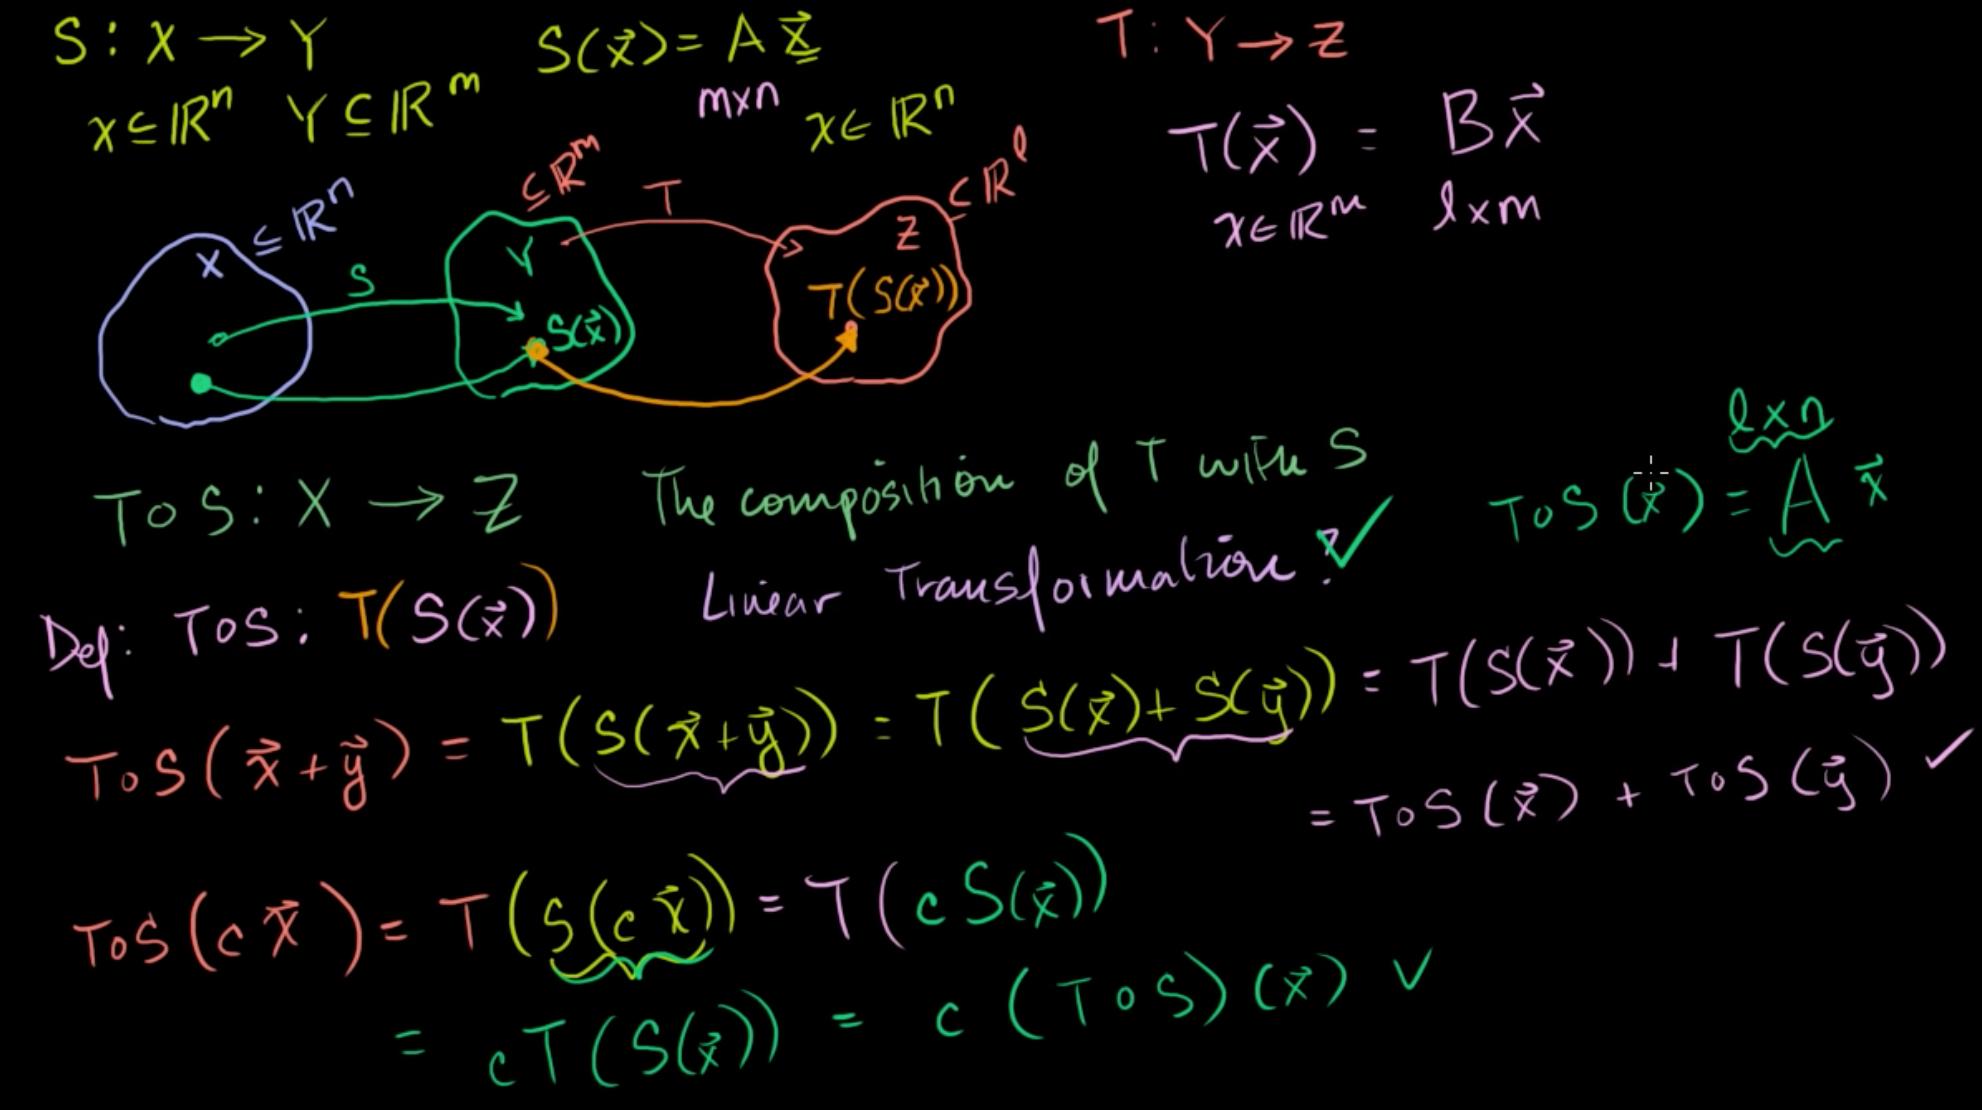 S : X → Y   S(x⃗) = A x⃗   T : Y → Z
X ⊆ ℝⁿ   Y ⊆ ℝᵐ   m×n   x ∈ ℝⁿ   T(x⃗) = B x⃗
x ∈ ℝᵐ   l×m
X ⊆ ℝⁿ   S   Y ⊆ ℝᵐ   T   Z ⊆ ℝˡ
S(x⃗)   T(S(x⃗))
l×n
T∘S : X → Z   The composition of T with S   T∘S(x⃗) = A x⃗
Linear Transformation? ✓
Def: T∘S : T(S(x⃗))
T∘S(x⃗+y⃗) = T(S(x⃗+y⃗)) = T(S(x⃗)+S(y⃗)) = T(S(x⃗)) + T(S(y⃗))
= T∘S(x⃗) + T∘S(y⃗) ✓
T∘S(c x⃗) = T(S(c x⃗)) = T(c S(x⃗))
= c T(S(x⃗)) = c (T∘S)(x⃗) ✓